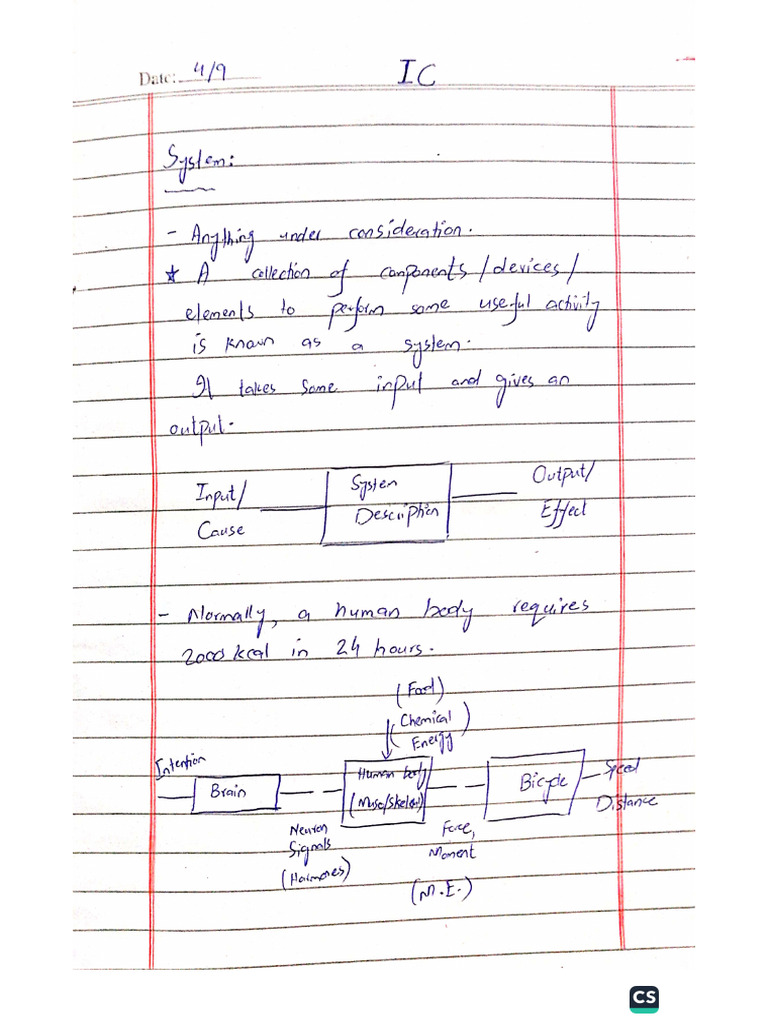 Date: 4/9
IC
System:
- Anything under consideration.
* A collection of components/devices/
elements to perform some useful activity
is known as a system.
It takes some input and gives an
output.
Input/
Cause
System
Description
Output/
Effect
- Normally, a human body requires
2000 kcal in 24 hours.
(Food)
(Chemical
Energy)
Intention
Brain
Neuron
Signals
(Harmones)
Human body
(Musc/Skeletal)
Force,
Moment
(M.E.)
Bicycle
Speed
Distance
CS